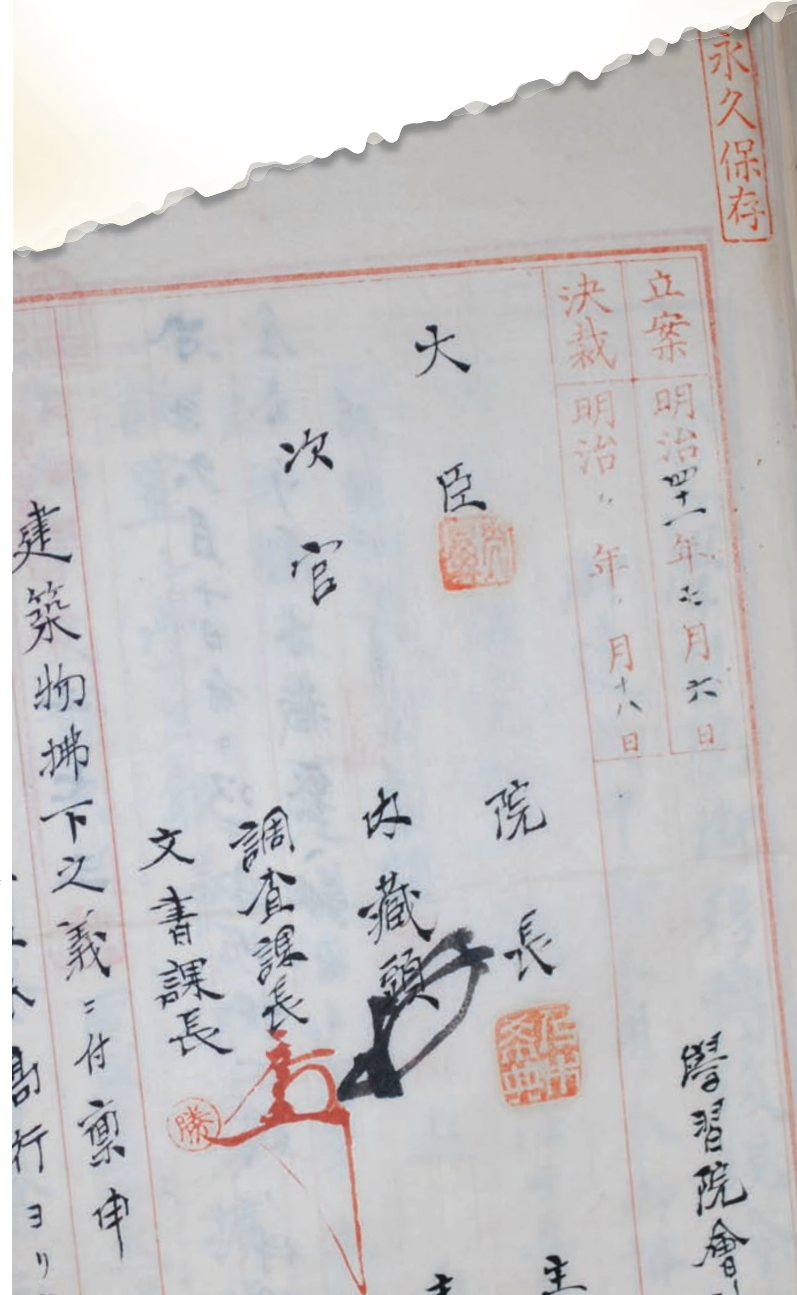 永久保存
立案 明治四十一年七月六日
決裁 明治〃年〃月十八日
學習院會
大臣
院長
次官
内藏頭
調査課長
文書課長
勝
建築物拂下之義ニ付稟申